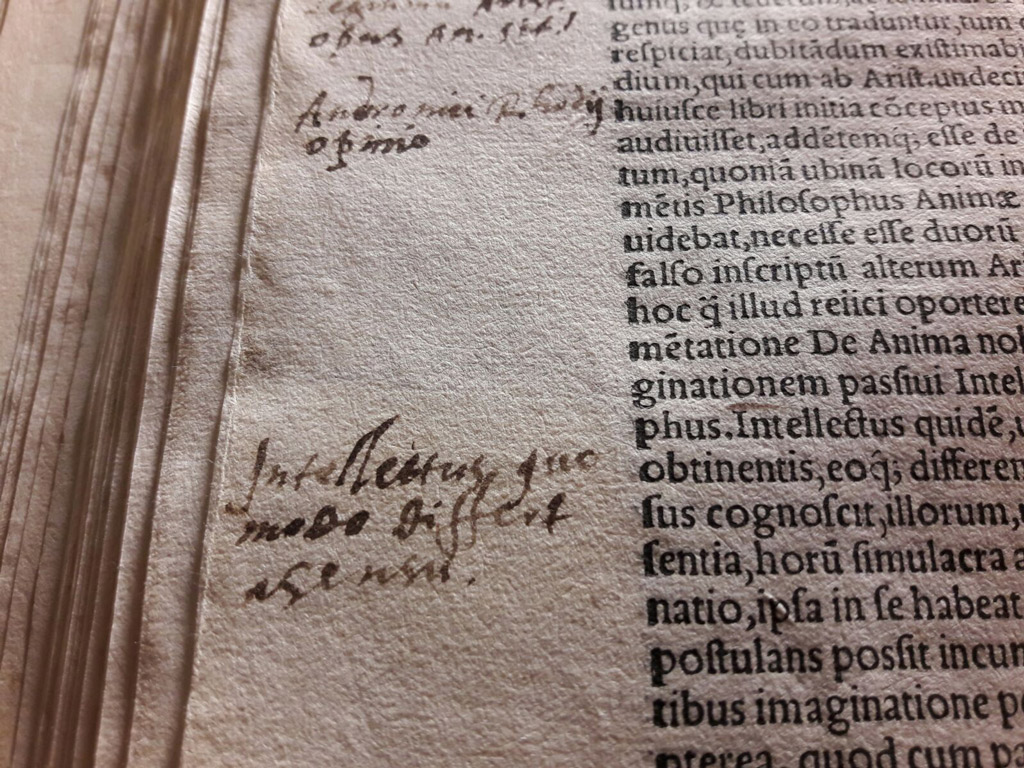 opus an. sit!
Andronici Rhodij
opinio
Intellectus quo
modo differt
a sensu.
genus quę in eo traduntur, tum
reſpiciat, dubitādum exiſtimabi
dium, qui cum ab Ariſt. undeci
huiuſce libri initia cōceptus m
audiuiſſet, addētemq; eſſe de
tum, quoniā ubinā locorū in
mētis Philoſophus Animæ
uidebat, neceſſe eſſe duorū
falſo inſcriptū alterum Ar
hoc q̃ illud reiici oportere
mētatione De Anima no
ginationem paſſiui Intel
phus. Intellectus quidē, u
obtinentis, eoq̃; differen
ſus cognoſcit, illorum,
ſentia, horū ſimulacra a
natio, ipſa in ſe habeat
poſtulans poſſit incur
tibus imaginatione p
pterea, quod cum pa